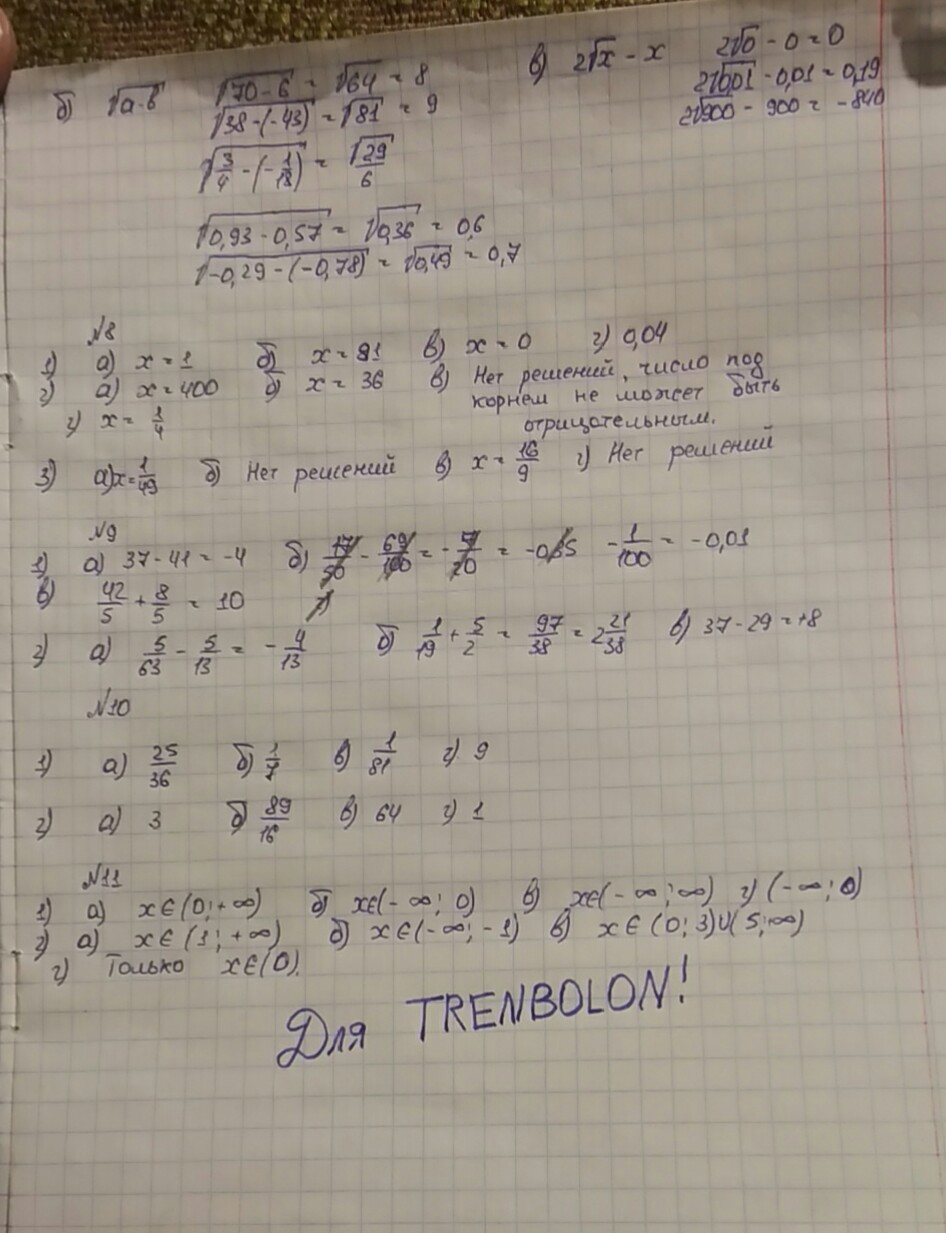 б) √a-b √70-6 = √64 = 8 в) 2√x - x 2√0 - 0 = 0
√38-(-43) = √81 = 9 2√0,01 - 0,01 = 0,19
2√900 - 900 = -840
√3/4 - (-1/18) = √29/6
√0,93-0,57 = √0,36 = 0,6
√-0,29-(-0,78) = √0,49 = 0,7
№8
1) а) x = 1 б) x = 81 в) x = 0 г) 0,04
2) а) x = 400 б) x = 36 в) Нет решений, число под
корнем не может быть
отрицательным.
г) x = 1/4
3) а) x = 1/49 б) Нет решений в) x = 16/9 г) Нет решений
№9
1) а) 37-41 = -4 б) 17/50 - 69/100 = - 7/20 = -0,35 -1/100 = -0,01
в) 42/5 + 8/5 = 10
2) а) 5/63 - 5/13 = -4/13 б) 1/19 + 5/2 = 97/38 = 2 21/38 в) 37-29 = +8
№10
1) а) 25/36 б) 1/7 в) 1/81 г) 9
2) а) 3 б) 89/16 в) 64 г) 1
№11
1) а) x∈(0;+∞) б) x∈(-∞; 0) в) x∈(-∞;∞) г) (-∞; 0)
2) а) x∈(1; +∞) б) x∈(-∞; -1) в) x∈(0; 3)∪(5;∞)
г) Только x∈(0).
Для TRENBOLON!